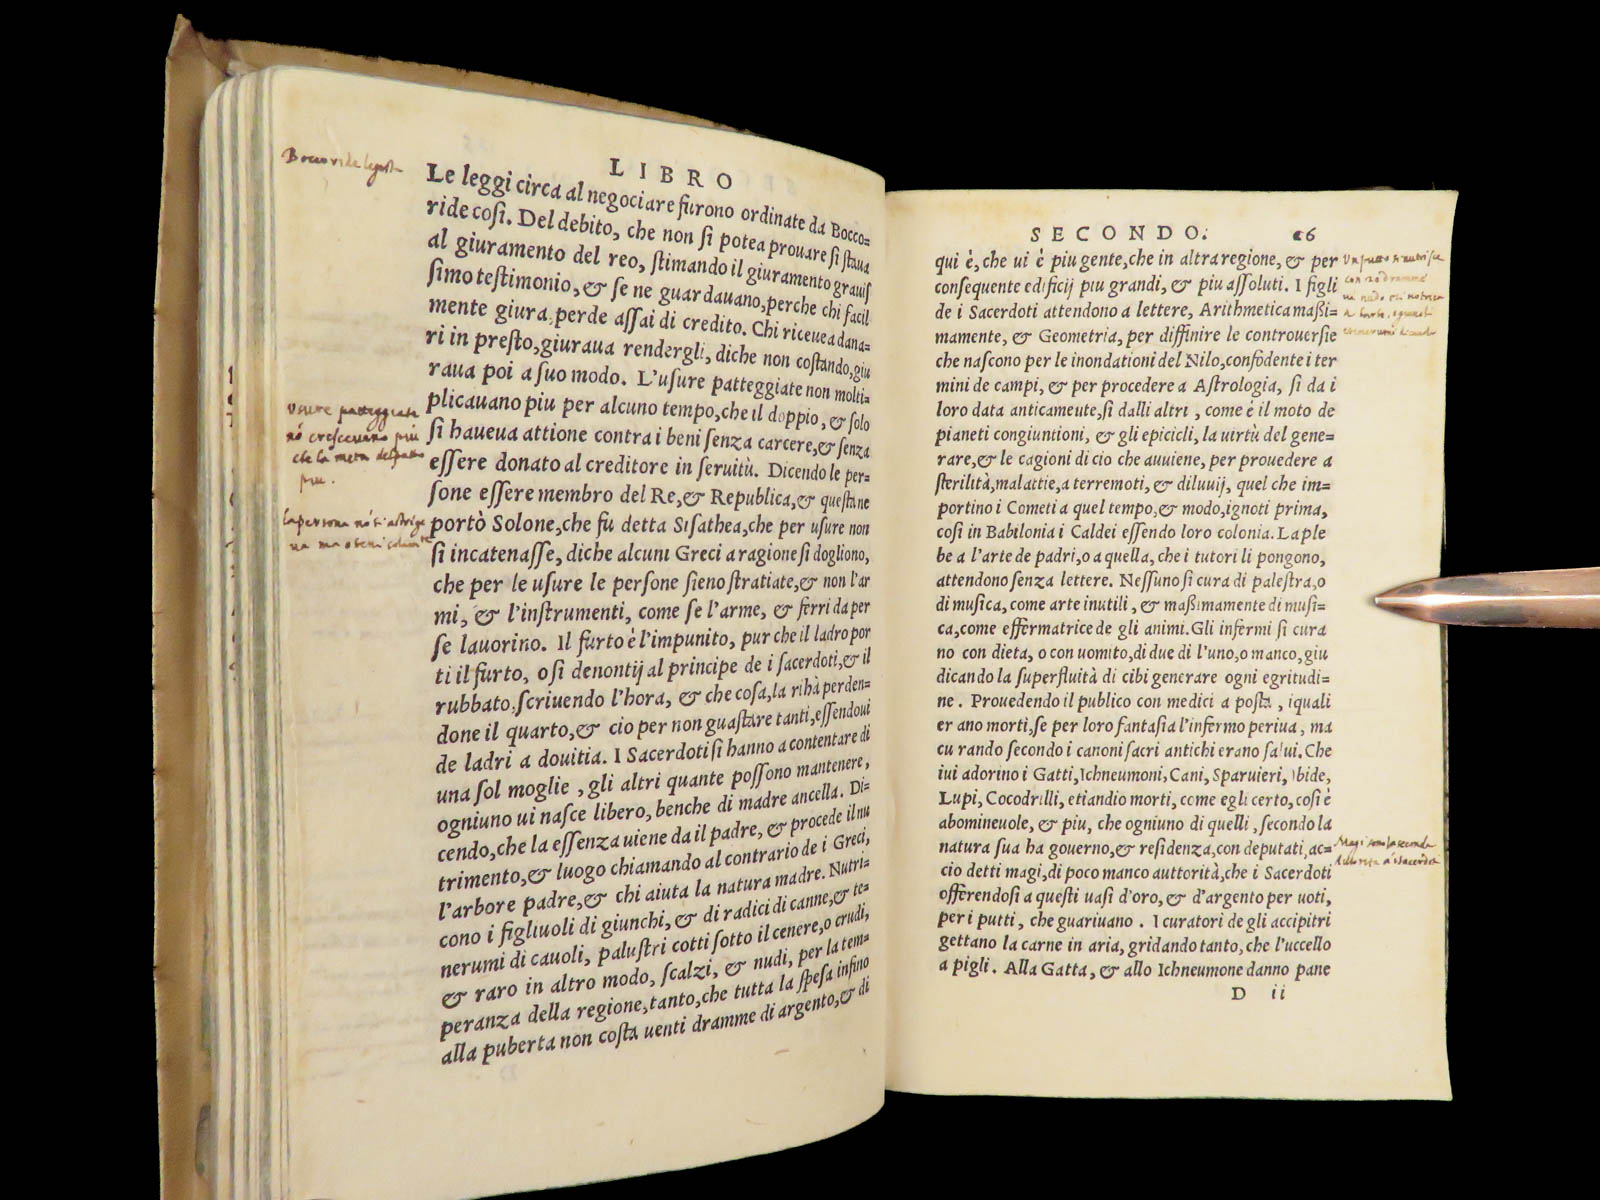 LIBRO
Le leggi circa al negociare furono ordinate da Bocco=
ride cosi. Del debito, che non si potea prouare si staua
al giuramento del reo, stimando il giuramento grauis
simo testimonio, & se ne guardauano, perche chi facil
mente giura, perde assai di credito. Chi riceuea dana=
ri in presto, giuraua rendergli, diche non costando, giu
raua poi a suo modo. L'usure patteggiate non molti=
plicauano piu per alcuno tempo, che il doppio, & solo
si haueua attione contra i beni senza carcere, & senza
essere donato al creditore in seruitù. Dicendo le per=
sone essere membro del Re, & Republica, & questa ne
portò Solone, che fu detta Sisathea, che per usure non
si incatenasse, diche alcuni Greci a ragione si dogliono,
che per le usure le persone sieno stratiate, & non l'ar
mi, & l'instrumenti, come se l'arme, & ferri da per
se lauorino. Il furto è l'impunito, pur che il ladro por
ti il furto, o si denontij al principe de i sacerdoti, & il
rubbato, scriuendo l'hora, & che cosa, la rihà perden=
done il quarto, & cio per non guastare tanti, essendoui
de ladri a douitia. I Sacerdoti si hanno a contentare di
una sol moglie, gli altri quante possono mantenere,
ogniuno ui nasce libero, benche di madre ancella. Di=
cendo, che la essenza uiene da il padre, & procede il nu
trimento, & luogo chiamando al contrario de i Greci,
l'arbore padre, & chi aiuta la natura madre. Nutri=
cono i figliuoli di giunchi, & di radici di canne, & te=
nerumi di cauoli, palustri cotti sotto il cenere, o crudi,
& raro in altro modo, scalzi, & nudi, per la tem=
peranza della regione, tanto, che tutta la spesa infino
alla puberta non costa uenti dramme di argento, & di
Usure patteggiate
nó cresceuano piu
che la meta del
piu.
la persona nó si
SECONDO. 26
qui è, che ui è piu gente, che in altra regione, & per
consequente edificij piu grandi, & piu assoluti. I figli
de i Sacerdoti attendono a lettere, Arithmetica massi=
mamente, & Geometria, per diffinire le controuersie
che nascono per le inondationi del Nilo, confõdente i ter
mini de campi, & per procedere a Astrologia, si da i
loro data anticamente, si dalli altri, come è il moto de
pianeti congiuntioni, & gli epicicli, la uirtù del gene=
rare, & le cagioni di cio che auuiene, per prouedere a
sterilità, malattie, a terremoti, & diluuij, quel che im=
portino i Cometi a quel tempo, & modo, ignoti prima,
cosi in Babilonia i Caldei essendo loro colonia. La ple
be a l'arte de padri, o a quella, che i tutori li pongono,
attendono senza lettere. Nessuno si cura di palestra, o
di musica, come arte inutili, & massimamente di musi=
ca, come effermatrice de gli animi. Gli infermi si cura
no con dieta, o con uomito, di due di l'uno, o manco, giu
dicando la superfluità di cibi generare ogni egritudi=
ne. Prouedendo il publico con medici a posta, iquali
erano morti, se per loro fantasia l'infermo periua, ma
curando secondo i canoni sacri antichi erano salui. Che
iui adorino i Gatti, Ichneumoni, Cani, Sparuieri, Ibide,
Lupi, Cocodrilli, etiandio morti, come egli certo, cosi è
abomineuole, & piu, che ogniuno di quelli, secondo la
natura sua ha gouerno, & residenza, con deputati, ac=
cio detti magi, di poco manco auttorità, che i Sacerdoti
offerendosi a questi uasi d'oro, & d'argento per uoti,
per i putti, che guariuano. I curatori de gli accipitri
gettano la carne in aria, gridando tanto, che l'uccello
a pigli. Alla Gatta, & allo Ichneumone danno pane
D ii
Un putto si nutrisce
con 20 dramme
Magi sono la seconda